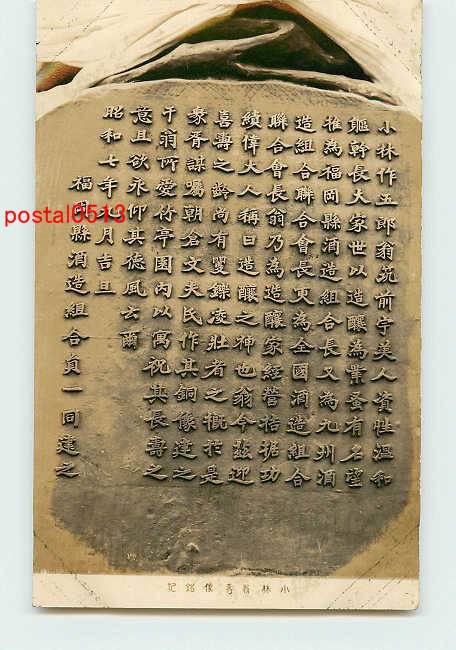 小林作五郎翁筑前宇美人資性溫和
軀幹長大家世以造釀為業蚤有名望
推為福岡縣酒造組合長又為九州酒
造組合聯合會長更為全國酒造組合
聯合會長翁乃為造釀家經營拮据功
績偉大人稱曰造釀之神也翁今茲迎
喜壽之齡尚有矍鑠凌壯者之慨於是
衆胥謀囑朝倉文夫氏作其銅像建之
于翁所愛待亭園內以寓祝其長壽之
意且欲永仰其德風云爾
昭和七年 月吉旦
福岡縣酒造組合貞一同建之
小林翁壽像銘記
postal0513